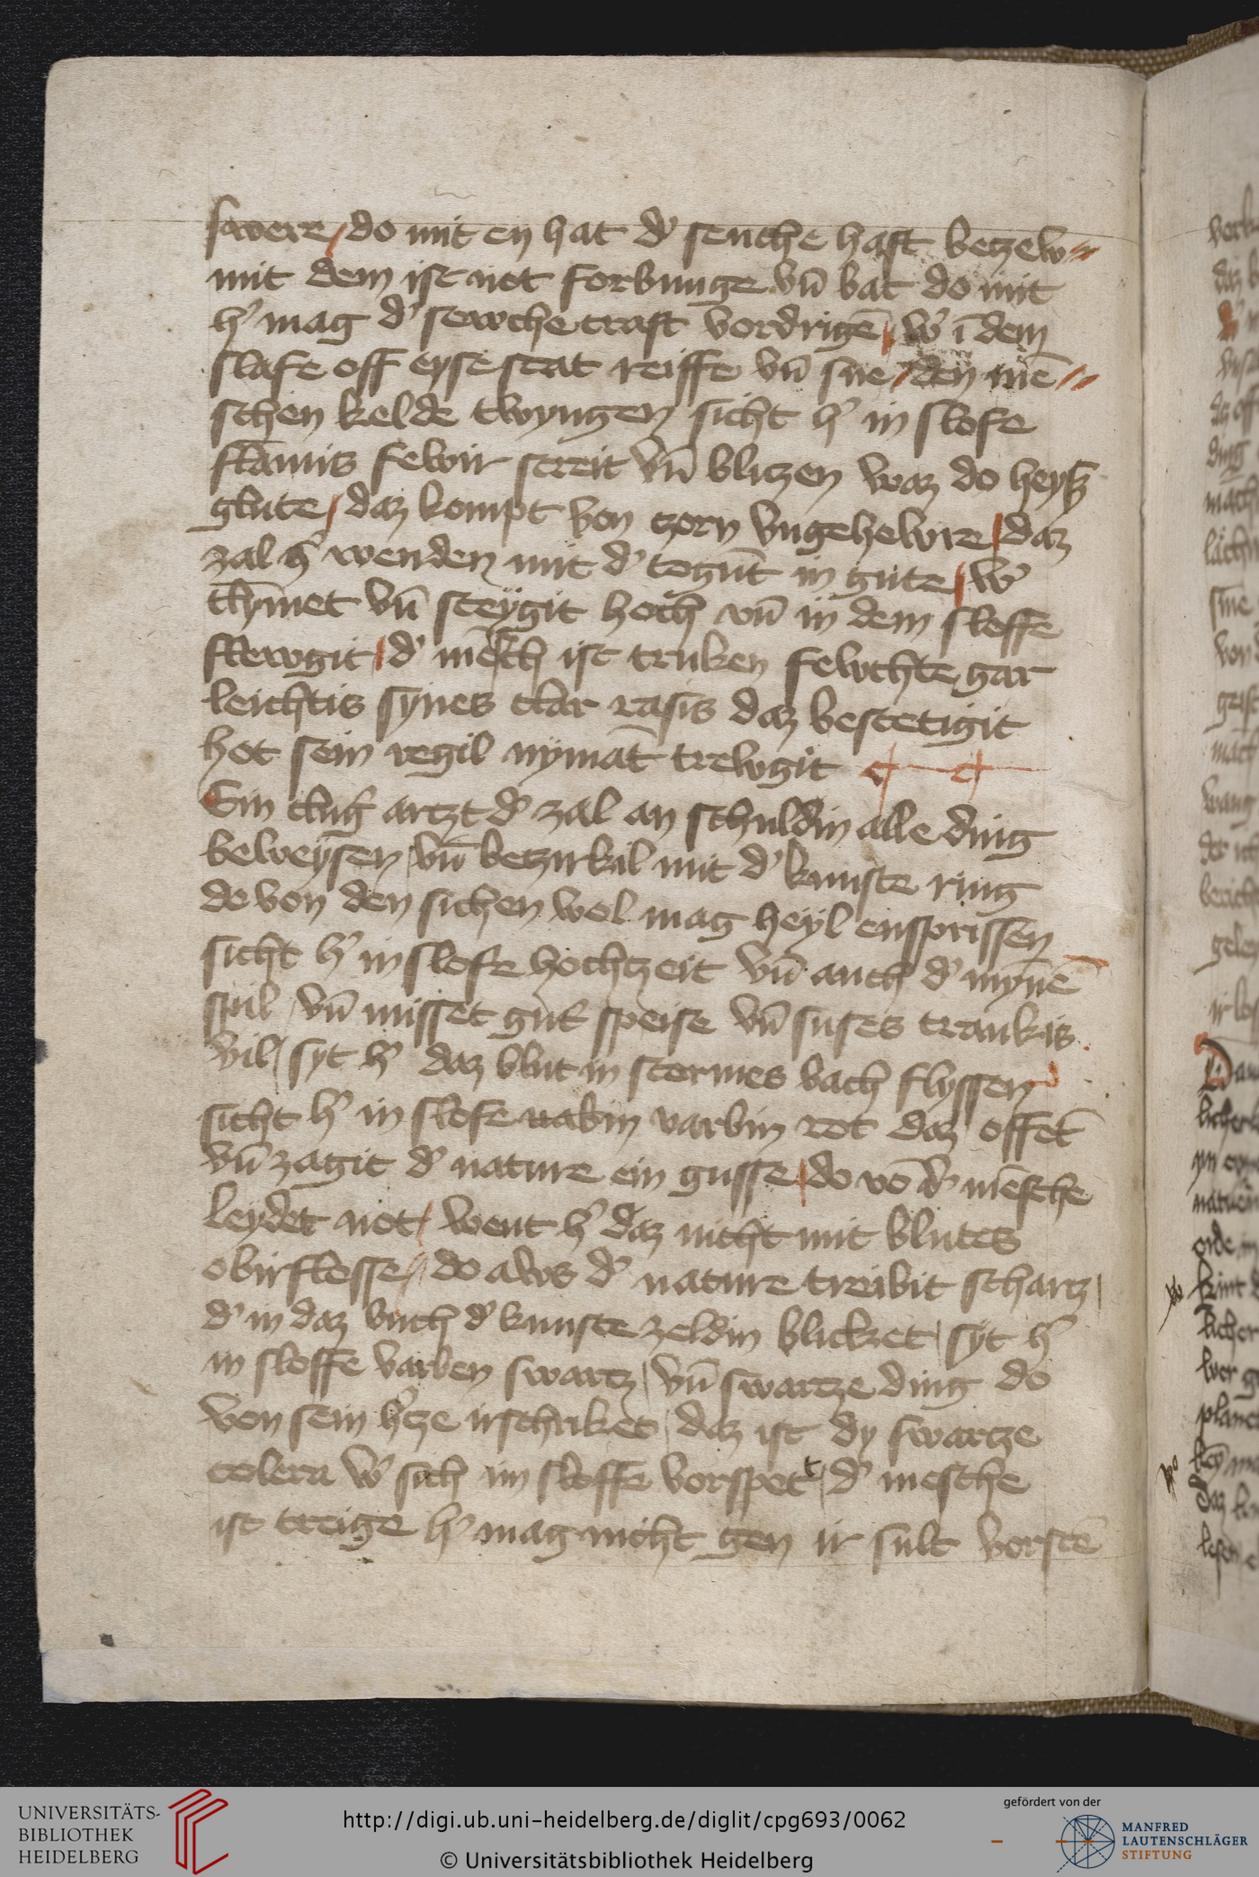 swere / do mit en hat d' seuche haft betzew //
mit dem ist not forbunge vn̄ bat do mit
h' mag d' sewche craft vordrigē / w' ī dem
slafe off eyse stat reiffe vn̄ sne / den mē //
schen kelde twyngen sicht h' in slofe
flamis fewir streit vn̄ blitzen waz do heyß
glute / daz kompt von czorn vngehewre / daz
zal h' wenden mit d' togūt in gute / w'
clȳmet vn̄ steygit hoch vn̄ in dem sloffe
flewgit / d' mēsch ist truken fewchte gar
leichtis synes clar rasis daz bestetigit
hot sein regil nymāt trewgit
Ein clug' artzt d' zal an schuldin alle ding
beweysen vn̄ betzirkil mit d' kunste ring
do von den sichen wol mag heyl ensprissen
sicht h' in slofe hochtzeit vn̄ auch d' mynē
spil / vn̄ nisset gut' speise vn̄ suses trankis
vil / syt h' daz blut in stormes bach flyssen
sicht h' in slofe varbin rot daz offet
vn̄ zagit d' nature ein gusse / do vō d' mēsche
leydet not / went h' daz nicht mit blutes
obirflosse // do aws d' nature treibit schartz
d' in daz buch d' kunste zeldin blicket / syt h'
in sloffe varben swartz / vn̄ swartze ding do
von sein h'tze irschriket / daz ist dy swartze
colera w' sich im sloffe vorspett / d' mesche
ist treige h' mag nicht gen ir sult vorstē
UNIVERSITÄTS-
BIBLIOTHEK
HEIDELBERG
http://digi.ub.uni-heidelberg.de/diglit/cpg693/0062
© Universitätsbibliothek Heidelberg
gefördert von der
MANFRED
LAUTENSCHLÄGER
STIFTUNG